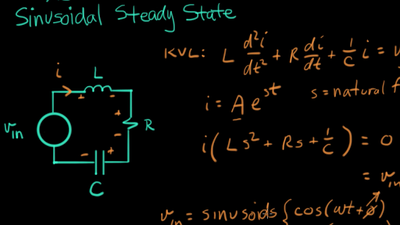 Sinusoidal Steady State
KVL: L d²i/dt² + R di/dt + 1/C i = v
i L
+ - + - R
v_in
- +
C
i = A e^st s = natural f
i(Ls² + Rs + 1/C) = 0
= v_in
v_in = sinusoids {cos(ωt + φ)